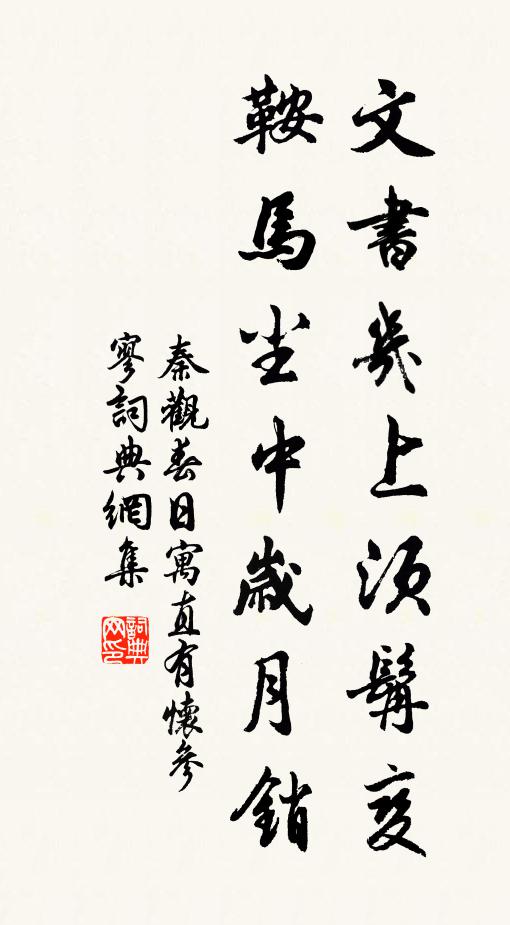 文書几上須髯變
鞍馬塵中歲月銷
秦觀春日寓直有懷參
寥詞典網集
詞典网印